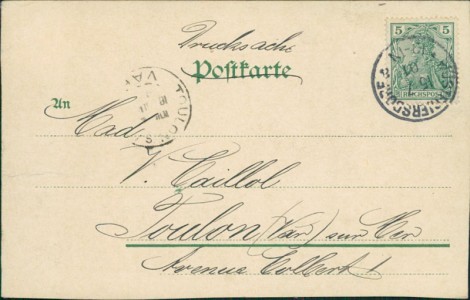 Drucksache
Postkarte
5 5
REICHSPOST
An
TOULON S
VAR
Mad.
V. Caillol
Toulon (Var) sur Mer
Avenue Colbert 1